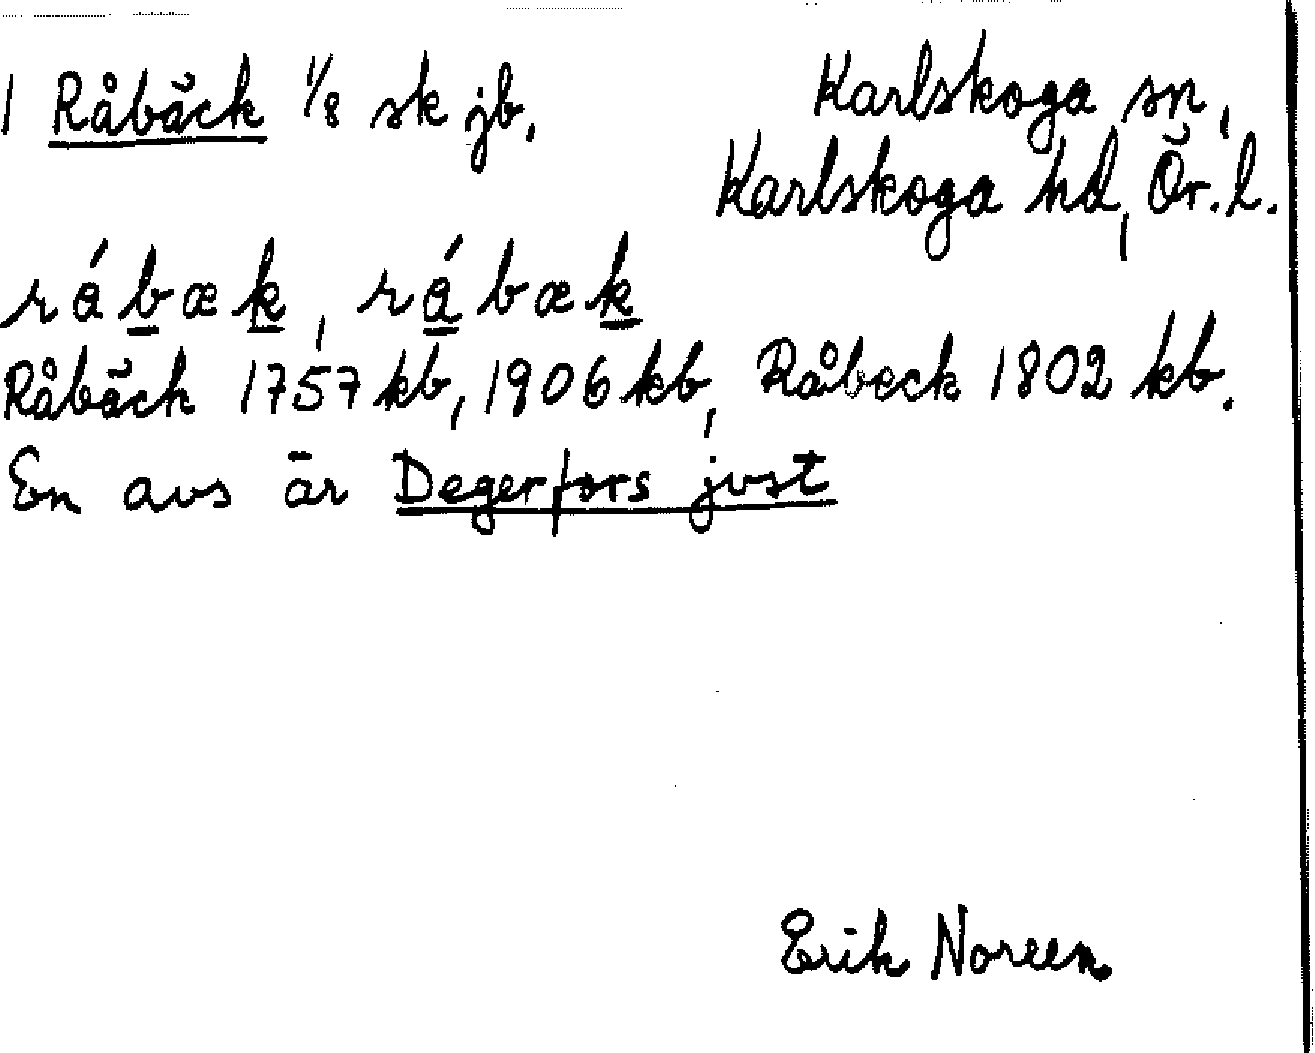 1 Råbäck 1/8 sk jb. Karlskoga sn,
Karlskoga hd, Ör. l.
rábæk, rábæk
Råbäck 1757 kb, 1906 kb, Råbeck 1802 kb.
En avs är Degerfors jvst
Erik Noreen